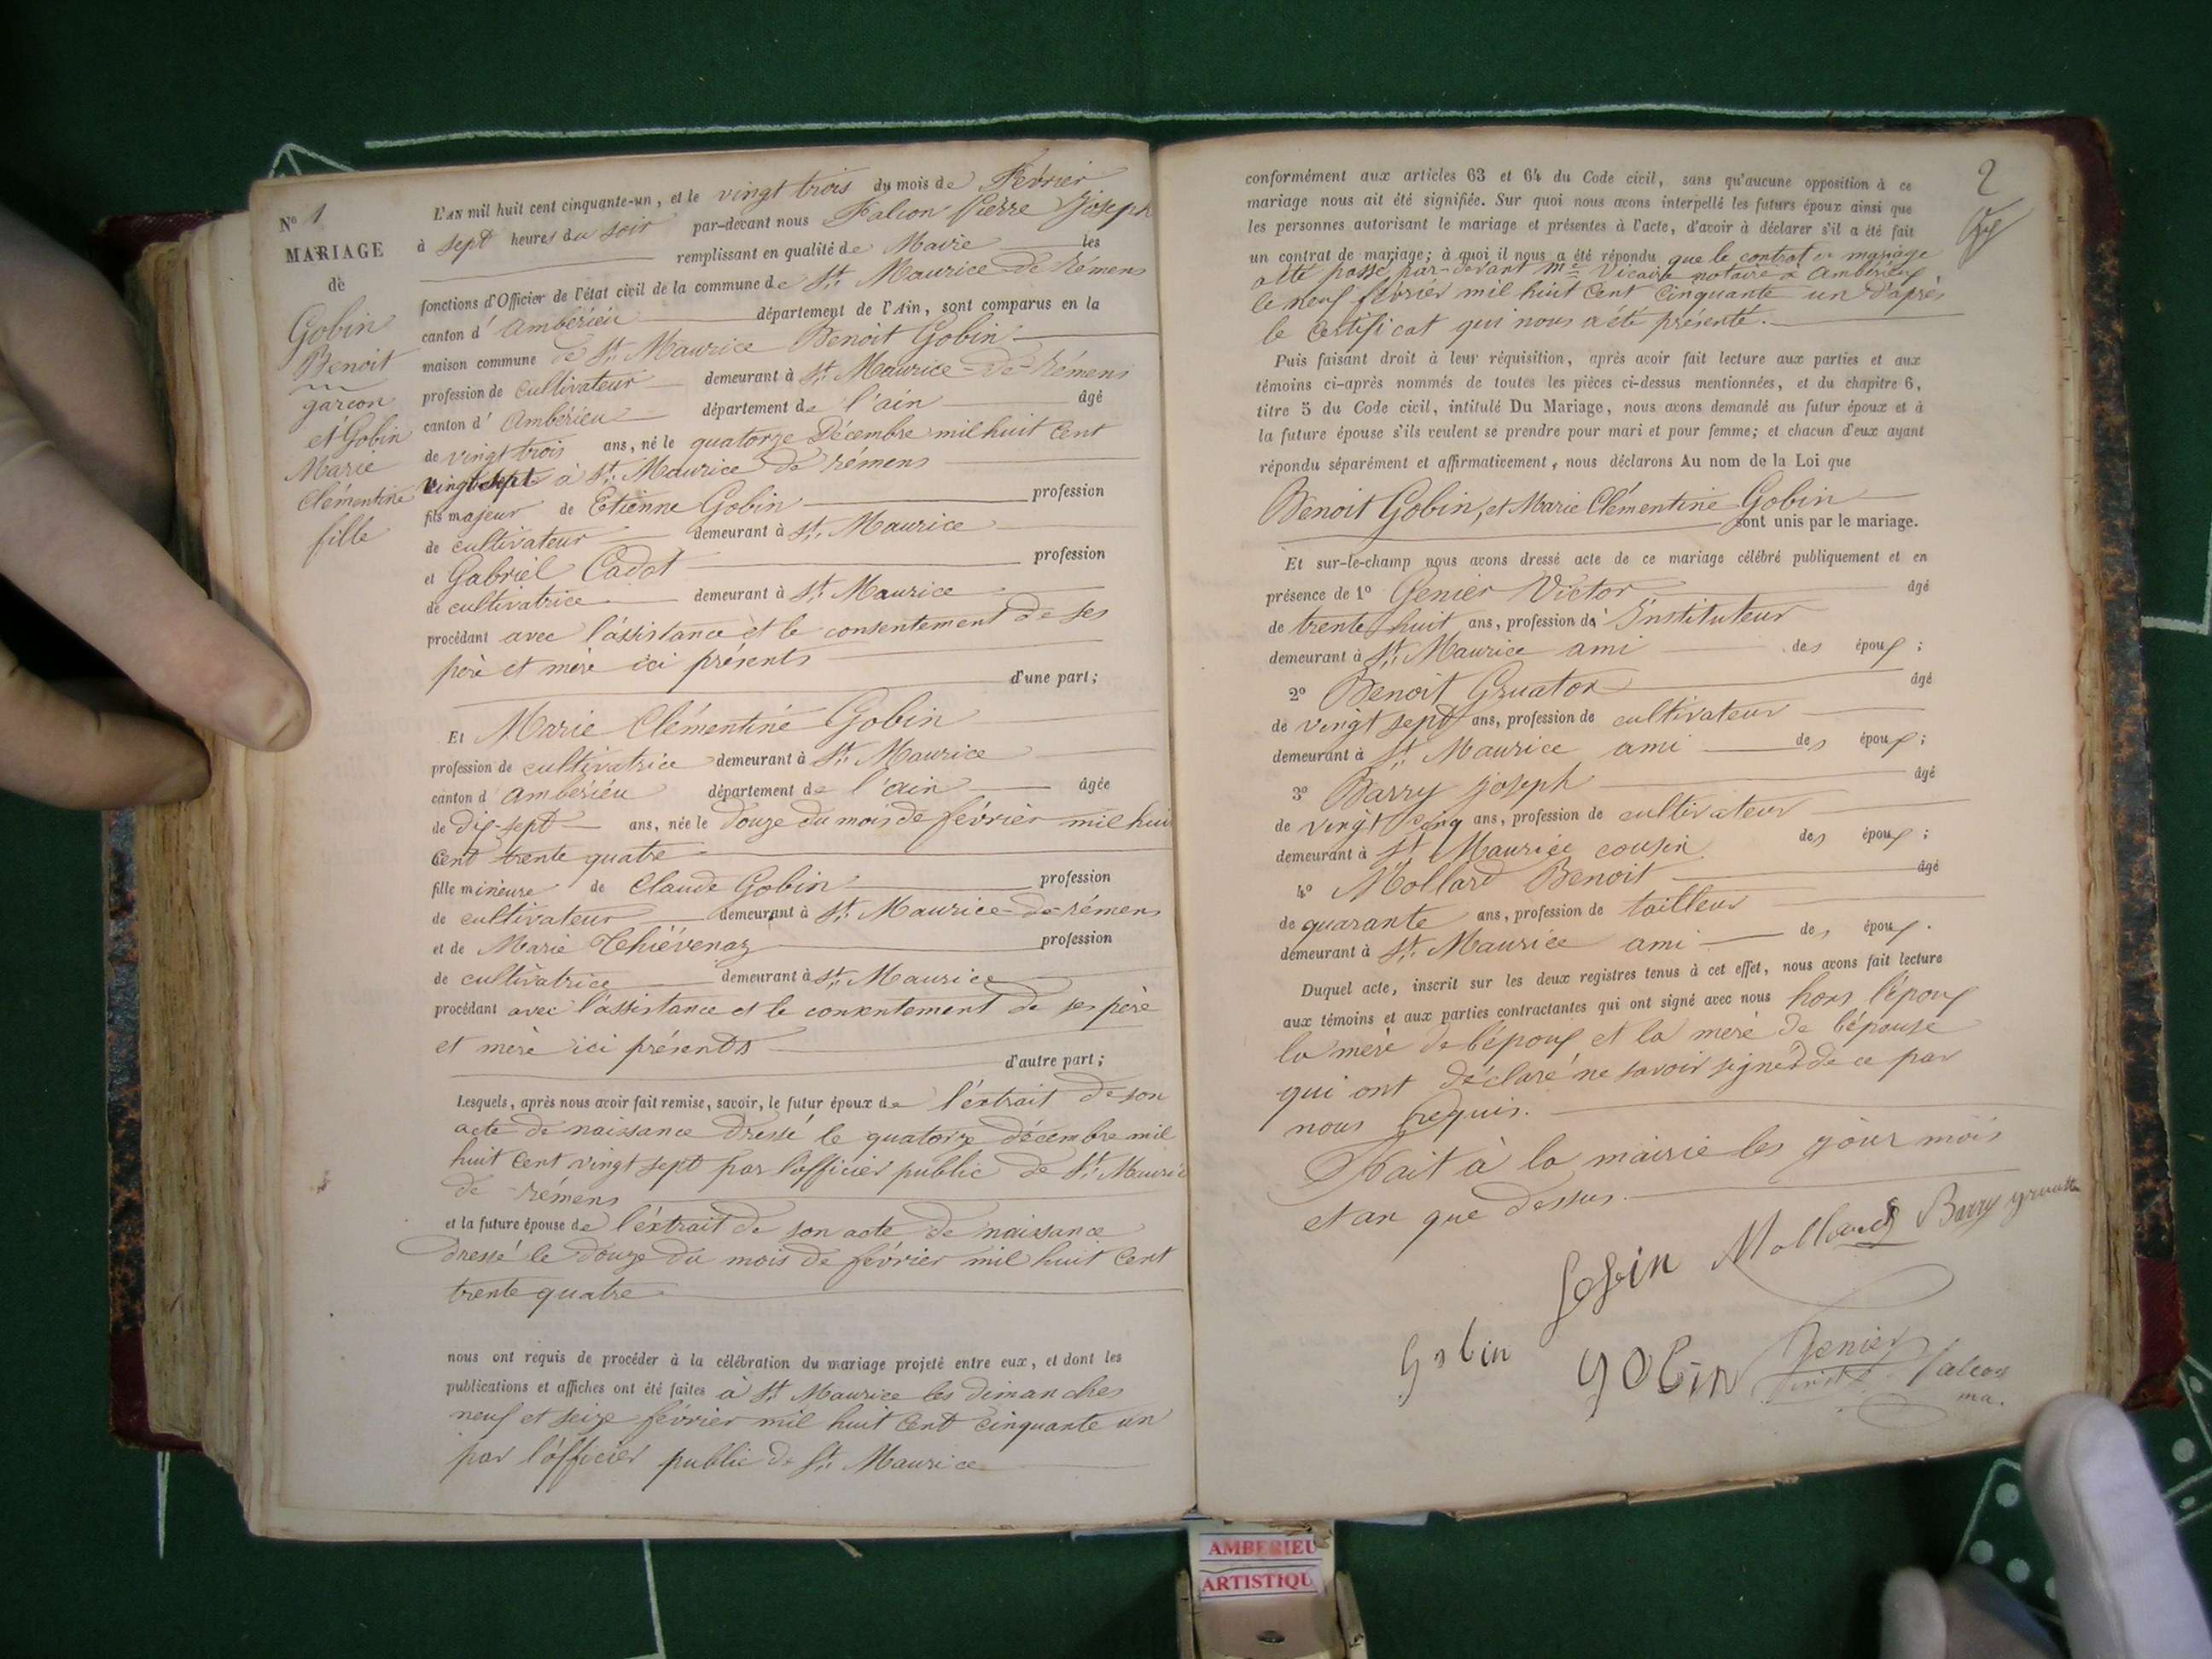 N° 1
MARIAGE
de
Gobin
Benoit
garcon
et Gobin
Marie
Clémentine
fille
L'AN mil huit cent cinquante-un, et le vingt trois du mois de Février
à sept heures du soir par-devant nous Falcon Pierre Joseph
remplissant en qualité de Maire les
fonctions d'Officier de l'état civil de la commune de St. Maurice-de-Rémens
canton d' Ambérieu département de l'Ain, sont comparus en la
maison commune de St. Maurice Benoit Gobin
profession de Cultivateur demeurant à St. Maurice-de-Rémens
canton d' Ambérieu département de l'ain âgé
de vingt trois ans, né le quatorze Décembre mil huit Cent
vingt sept à St. Maurice de rémens
fils majeur de Etienne Gobin profession
de cultivateur demeurant à St. Maurice
et Gabriel Cadot profession
de cultivatrice demeurant à St. Maurice
procédant avec l'assistance et le consentement de ses
père et mère ici présents
d'une part;
Et Marie Clémentine Gobin
profession de cultivatrice demeurant à St. Maurice
canton d' Ambérieu département de l'ain âgée
de dix-sept ans, née le douze du mois de février mil huit
Cent trente quatre
fille mineure de Claude Gobin profession
de cultivateur demeurant à St. Maurice-de-rémens
et de Marie Thiévenaz profession
de cultivatrice demeurant à St. Maurice
procédant avec l'assistance et le consentement de ses père
et mère ici présents
d'autre part;
Lesquels, après nous avoir fait remise, savoir, le futur époux de l'extrait de son
acte de naissance dressé le quatorze décembre mil
huit Cent vingt sept par l'officier public de St. Maurice
de rémens
et la future épouse de l'extrait de son acte de naissance
dressé le douze du mois de février mil huit Cent
trente quatre
nous ont requis de procéder à la célébration du mariage projeté entre eux, et dont les
publications et affiches ont été faites à St. Maurice les dimanches
neuf et seize février mil huit Cent Cinquante un
par l'officier public de St. Maurice
2
conformément aux articles 63 et 64 du Code civil, sans qu'aucune opposition à ce
mariage nous ait été signifiée. Sur quoi nous avons interpellé les futurs époux ainsi que
les personnes autorisant le mariage et présentes à l'acte, d'avoir à déclarer s'il a été fait
un contrat de mariage; à quoi il nous a été répondu que le contrat de mariage
a été passé par-devant me Vicaire notaire à Ambérieux,
le neuf février mil huit Cent Cinquante un d'après
le Certificat qui nous a été présenté.
Puis faisant droit à leur réquisition, après avoir fait lecture aux parties et aux
témoins ci-après nommés de toutes les pièces ci-dessus mentionnées, et du chapitre 6,
titre 5 du Code civil, intitulé Du Mariage, nous avons demandé au futur époux et à
la future épouse s'ils veulent se prendre pour mari et pour femme; et chacun d'eux ayant
répondu séparément et affirmativement, nous déclarons Au nom de la Loi que
Benoit Gobin, et Marie Clémentine Gobin
sont unis par le mariage.
Et sur-le-champ nous avons dressé acte de ce mariage célébré publiquement et en
présence de 1° Genier Victor âgé
de trente huit ans, profession de Instituteur
demeurant à St. Maurice ami des époux;
2° Benoit Gruatox âgé
de vingt sept ans, profession de cultivateur
demeurant à St. Maurice ami des époux;
3° Barry Joseph âgé
de vingt cinq ans, profession de cultivateur
demeurant à St. Maurice cousin des époux;
4° Mollard Benoit âgé
de quarante ans, profession de tailleur
demeurant à St. Maurice ami des époux.
Duquel acte, inscrit sur les deux registres tenus à cet effet, nous avons fait lecture
aux témoins et aux parties contractantes qui ont signé avec nous hors l'époux
la mère de l'époux et la mère de l'épouse
qui ont déclaré ne savoir signer de ce par
nous requis.
Fait à la mairie les jour mois
et an que dessus.
Gobin Mollard Barry
Gobin Gobin Genier Falcon
ma.
AMBERIEU
ARTISTIQU